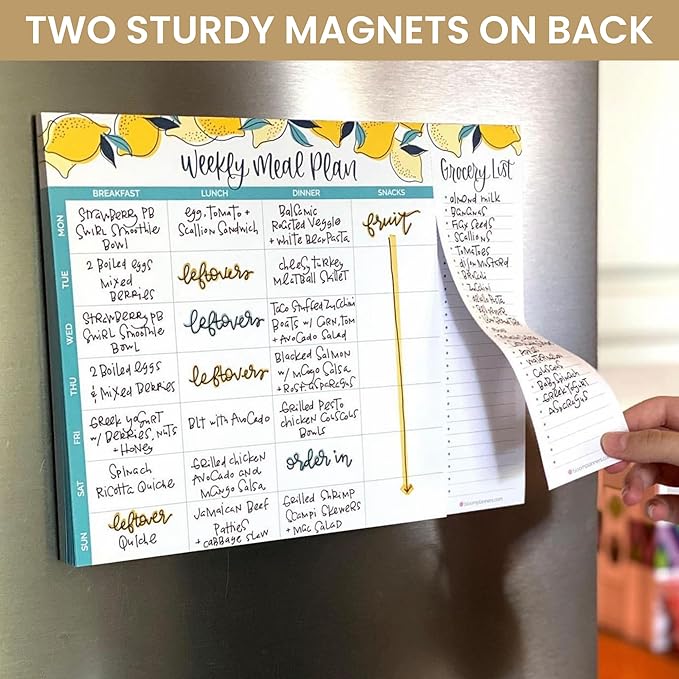 TWO STURDY MAGNETS ON BACK
Weekly Meal Plan
BREAKFAST LUNCH DINNER SNACKS
MON
Strawberry PB
Swirl Smoothie
Bowl
egg, Tomato +
Scallion Sandwich
Balsamic
Roasted Veggie
+ White Bean Pasta
fruit
TUE
2 Boiled eggs
Mixed
Berries
leftovers
cheesy turkey
Meatball Skillet
WED
Strawberry PB
Swirl Smoothie
Bowl
leftovers
Taco Stuffed Zucchini
Boats w/ Corn, Tom
+ Avocado Salad
THU
2 Boiled eggs
& Mixed Berries
leftovers
Blacked Salmon
w/ Mango Salsa
+ Roast Asparagus
FRI
Greek Yogurt
w/ Berries, Nuts
+ Honey
Blt with Avocado
Grilled Pesto
chicken Couscous
Bowls
SAT
Spinach
Ricotta Quiche
Grilled chicken
Avocado and
Mango Salsa
order in
SUN
leftover
Quiche
Jamaican Beef
Patties
+ cabbage slaw
Grilled Shrimp
Scampi Skewers
+ Mac Salad
Grocery List
almond milk
Bananas
Flax Seeds
Scallions
Tomatoes
dijon mustard
Broccoli
Zucchini
Couscous
Baby Spinach
Greek Yogurt
Asparagus
bloomplanners.com
bloomplanners.com